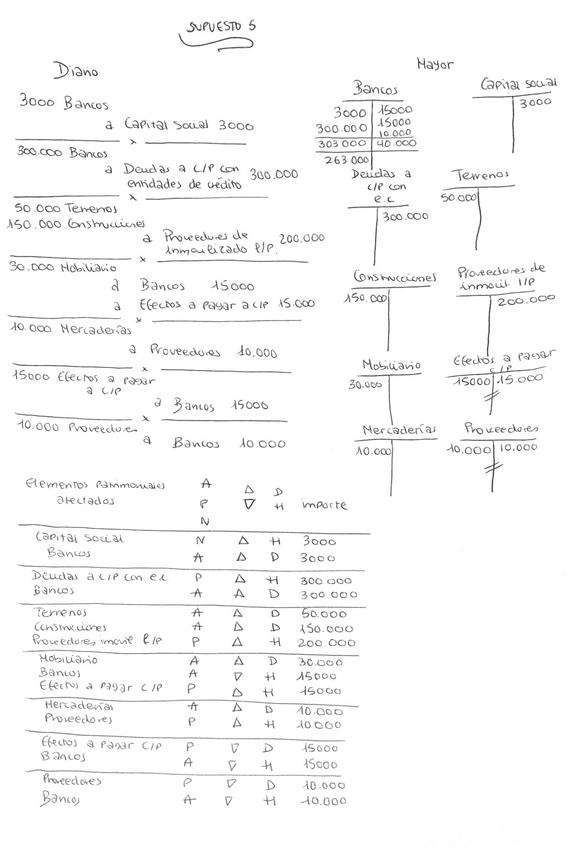 SUPUESTO 5
Diario
3000 Bancos
a Capital Social 3000
x
300.000 Bancos
a Deudas a C/P con
entidades de crédito 300.000
x
50.000 Terrenos
150.000 Construcciones
a Proveedores de
inmovilizado l/P. 200.000
x
30.000 Mobiliario
a Bancos 15000
a Efectos a pagar a c/P 15.000
x
10.000 Mercaderías
a Proveedores 10.000
x
15000 Efectos a pagar
a c/P
a Bancos 15000
x
10.000 Proveedores
a Bancos 10.000
Mayor
Bancos
3000 15000
300.000 15000
10.000
303000 40.000
263000
Capital social
3000
Deudas a
c/P con
e.c
300.000
Terrenos
50.000
Construcciones
150.000
Proveedores de
inmovil. l/P
200.000
Mobiliario
30.000
Efectos a pagar
c/P
15000 15.000
Mercaderías
10.000
Proveedores
10.000 10.000
Elementos patrimoniales A
afectados P △ ▽ D H importe
N
Capital social N △ H 3000
Bancos A △ D 3000
Deudas a c/P con e.c P △ H 300.000
Bancos A △ D 300.000
Terrenos A △ D 50.000
Construcciones A △ D 150.000
Proveedores inmovil. l/P P △ H 200.000
Mobiliario A △ D 30.000
Bancos A ▽ H 15000
Efectos a pagar c/P P △ H 15000
Mercaderías A △ D 10.000
Proveedores P △ H 10000
Efectos a pagar c/P P ▽ D 15000
Bancos A ▽ H 15000
Proveedores P ▽ D 10.000
Bancos A ▽ H 10.000